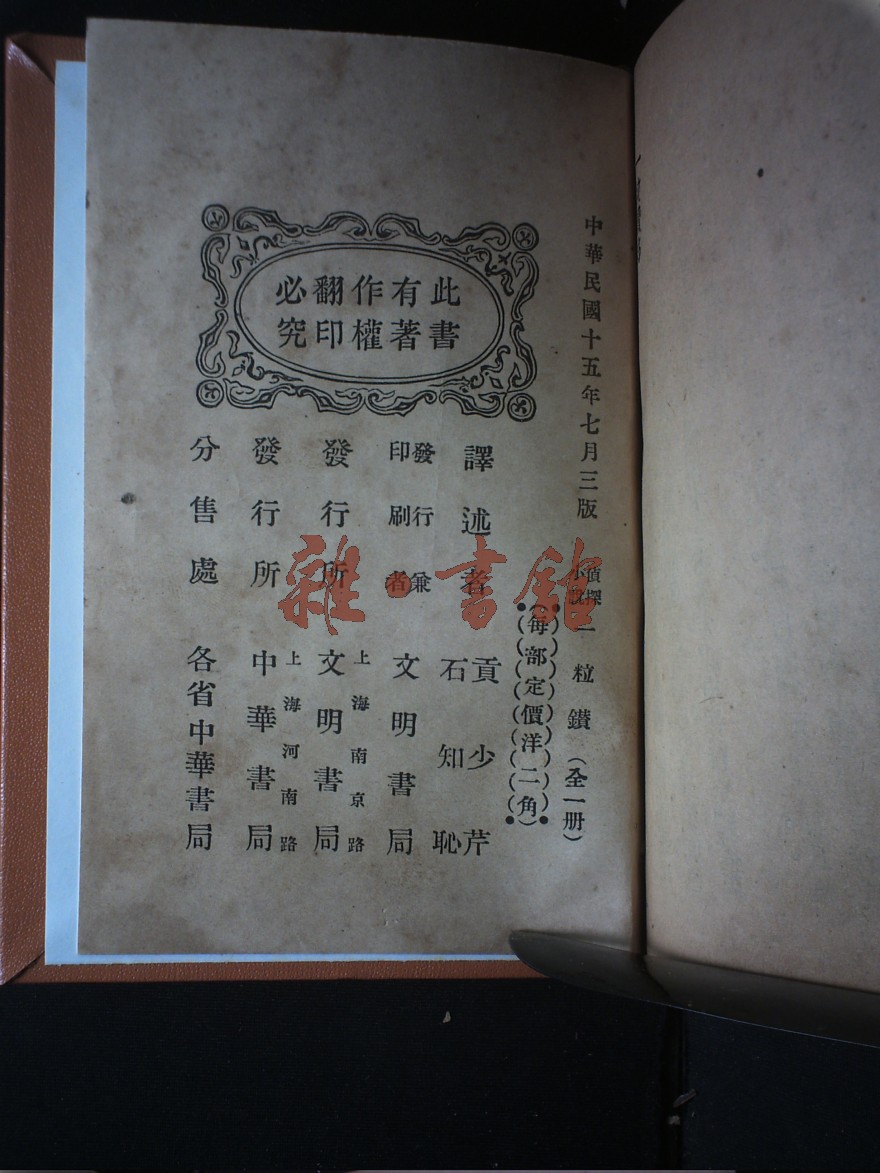 中華民國十五年七月三版
偵探小說 一粒鑽（全一册）
（每部定價洋二角）
此書有著作權翻印必究
譯述者 貢少芹 石知恥
發行兼印刷者 文明書局
發行所 上海南京路 文明書局
發行所 上海河南路 中華書局
分售處 各省中華書局
雜·書館